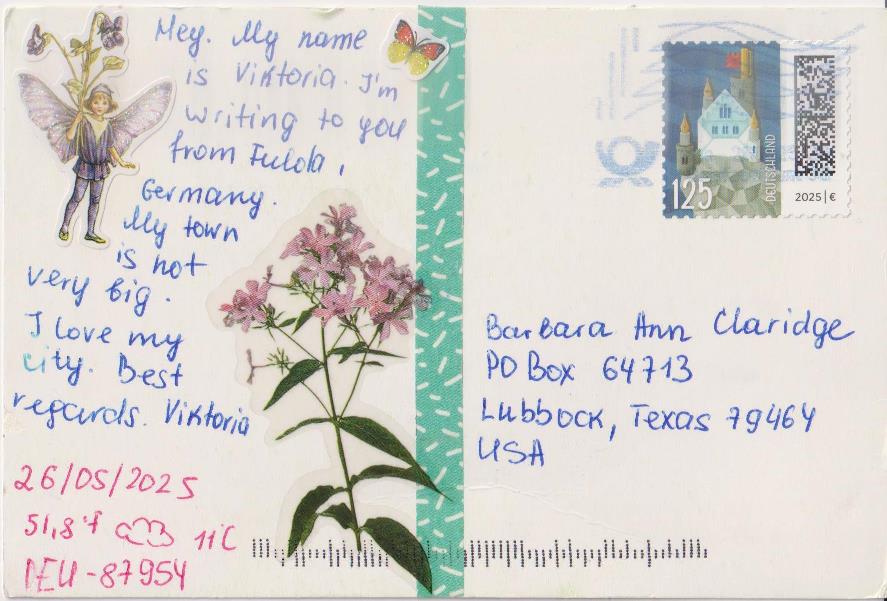 Hey. My name
is Viktoria. I'm
writing to you
from Fulda,
Germany.
My town
is not
very big.
I love my
city. Best
regards. Viktoria
26/05/2025
51,8°f 11°C
DEU-87954
125
DEUTSCHLAND
2025 | €
Barbara Ann Claridge
PO Box 64713
Lubbock, Texas 79464
USA